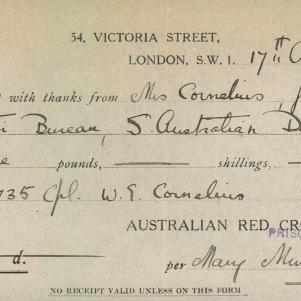 54, VICTORIA STREET,
LONDON, S.W. 1. 17th
with thanks from Mrs Cornelius,
Bureau, S. Australian D
pounds, shillings,
735 Cpl. W. E. Cornelius
AUSTRALIAN RED CR
PRISO
d. per Mary
NO RECEIPT VALID UNLESS ON THIS FORM